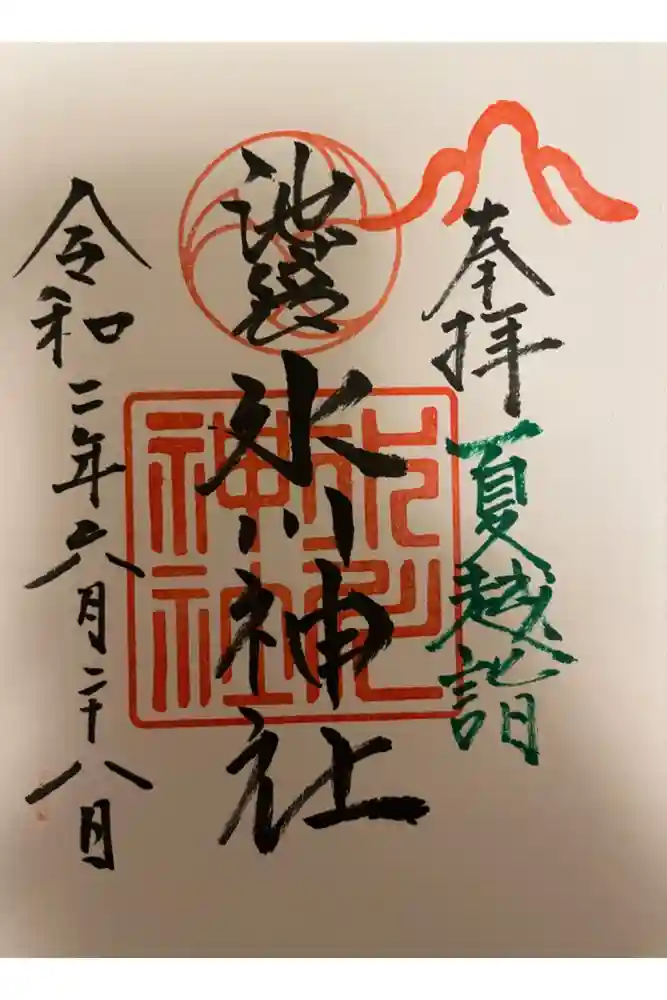 奉拝 夏越詣
池袋 氷川神社
氷川
神社
令和二年六月二十八日